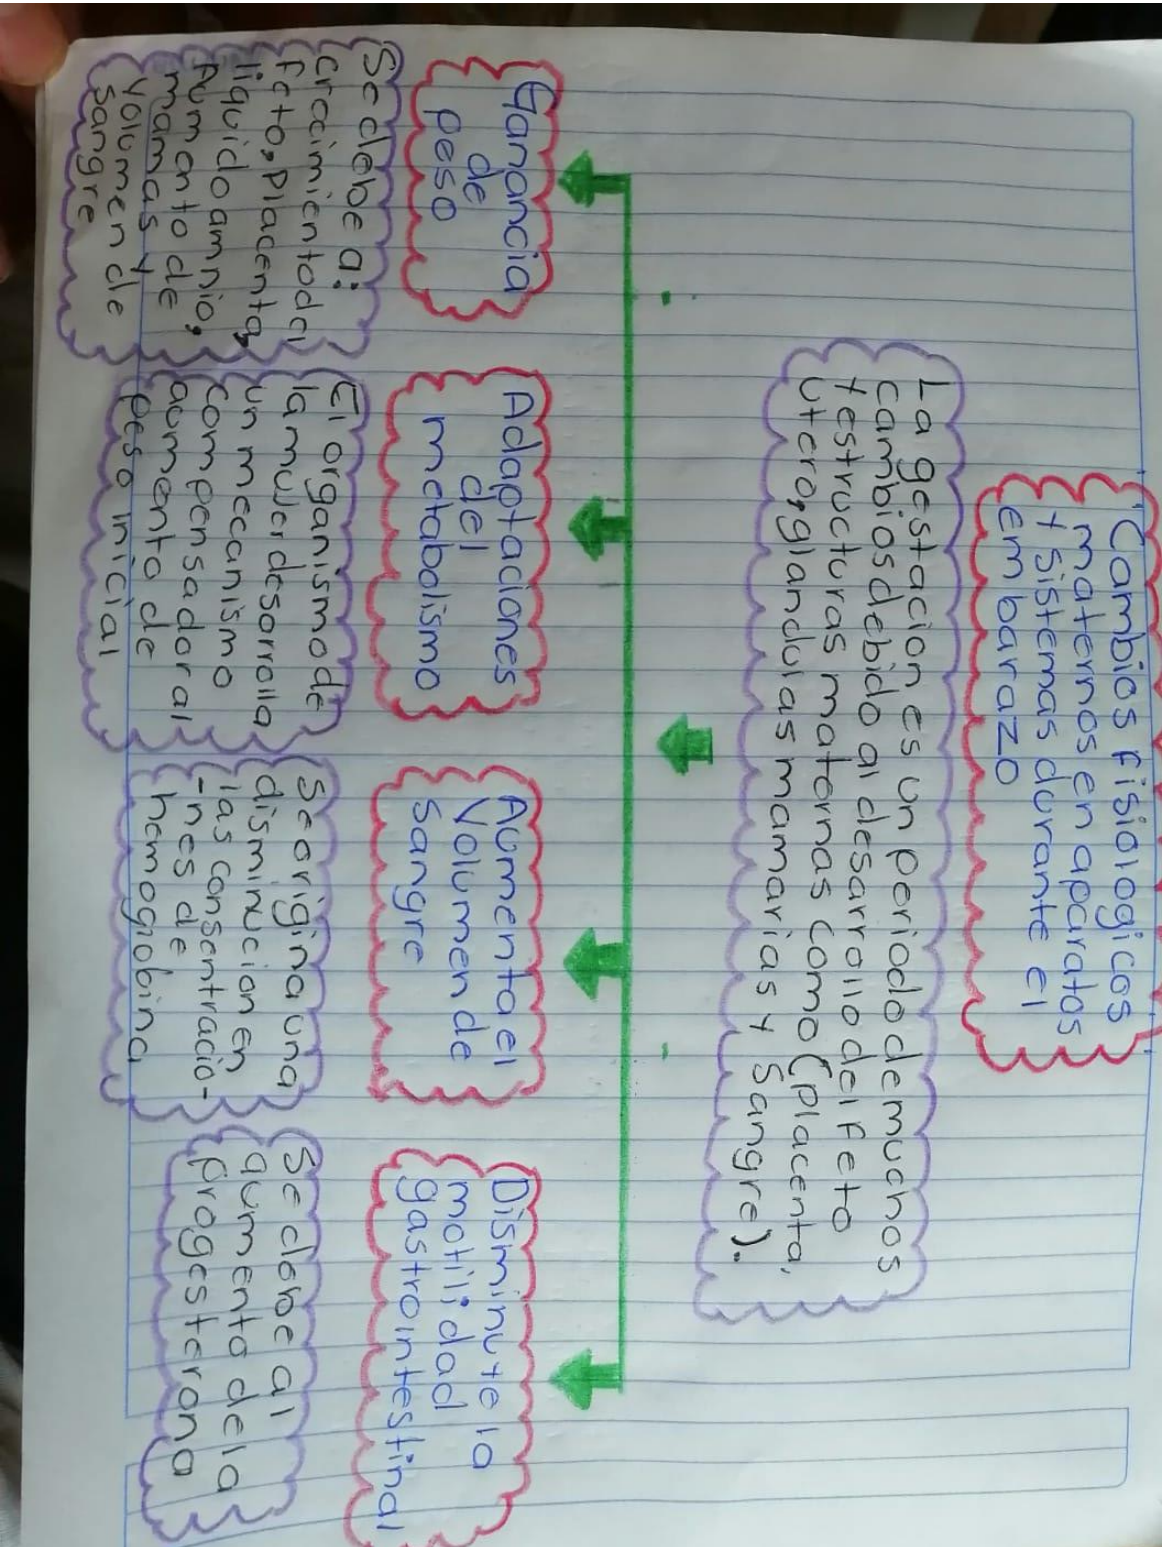 Cambios fisiologicos
maternos en aparatos
y sistemas durante el
embarazo
La gestacion es un periodo de muchos
cambios debido al desarrollo del feto
y estructuras maternas como (placenta,
utero, glandulas mamarias y Sangre).
Ganancia
de
peso
Se debe a:
crecimiento del
feto, placenta,
liquido amnio,
Aumento de
mamas y
volumen de
sangre
Adaptaciones
del
metabolismo
El organismo de
la mujer desarrolla
un mecanismo
compensador al
aumento de
peso inicial
Aumenta el
Volumen de
Sangre
Se origina una
disminucion en
las consentracio-
-nes de
hemoglobina
Disminuye la
motilidad
gastrointestinal
Se debe al
aumento de la
progesterona